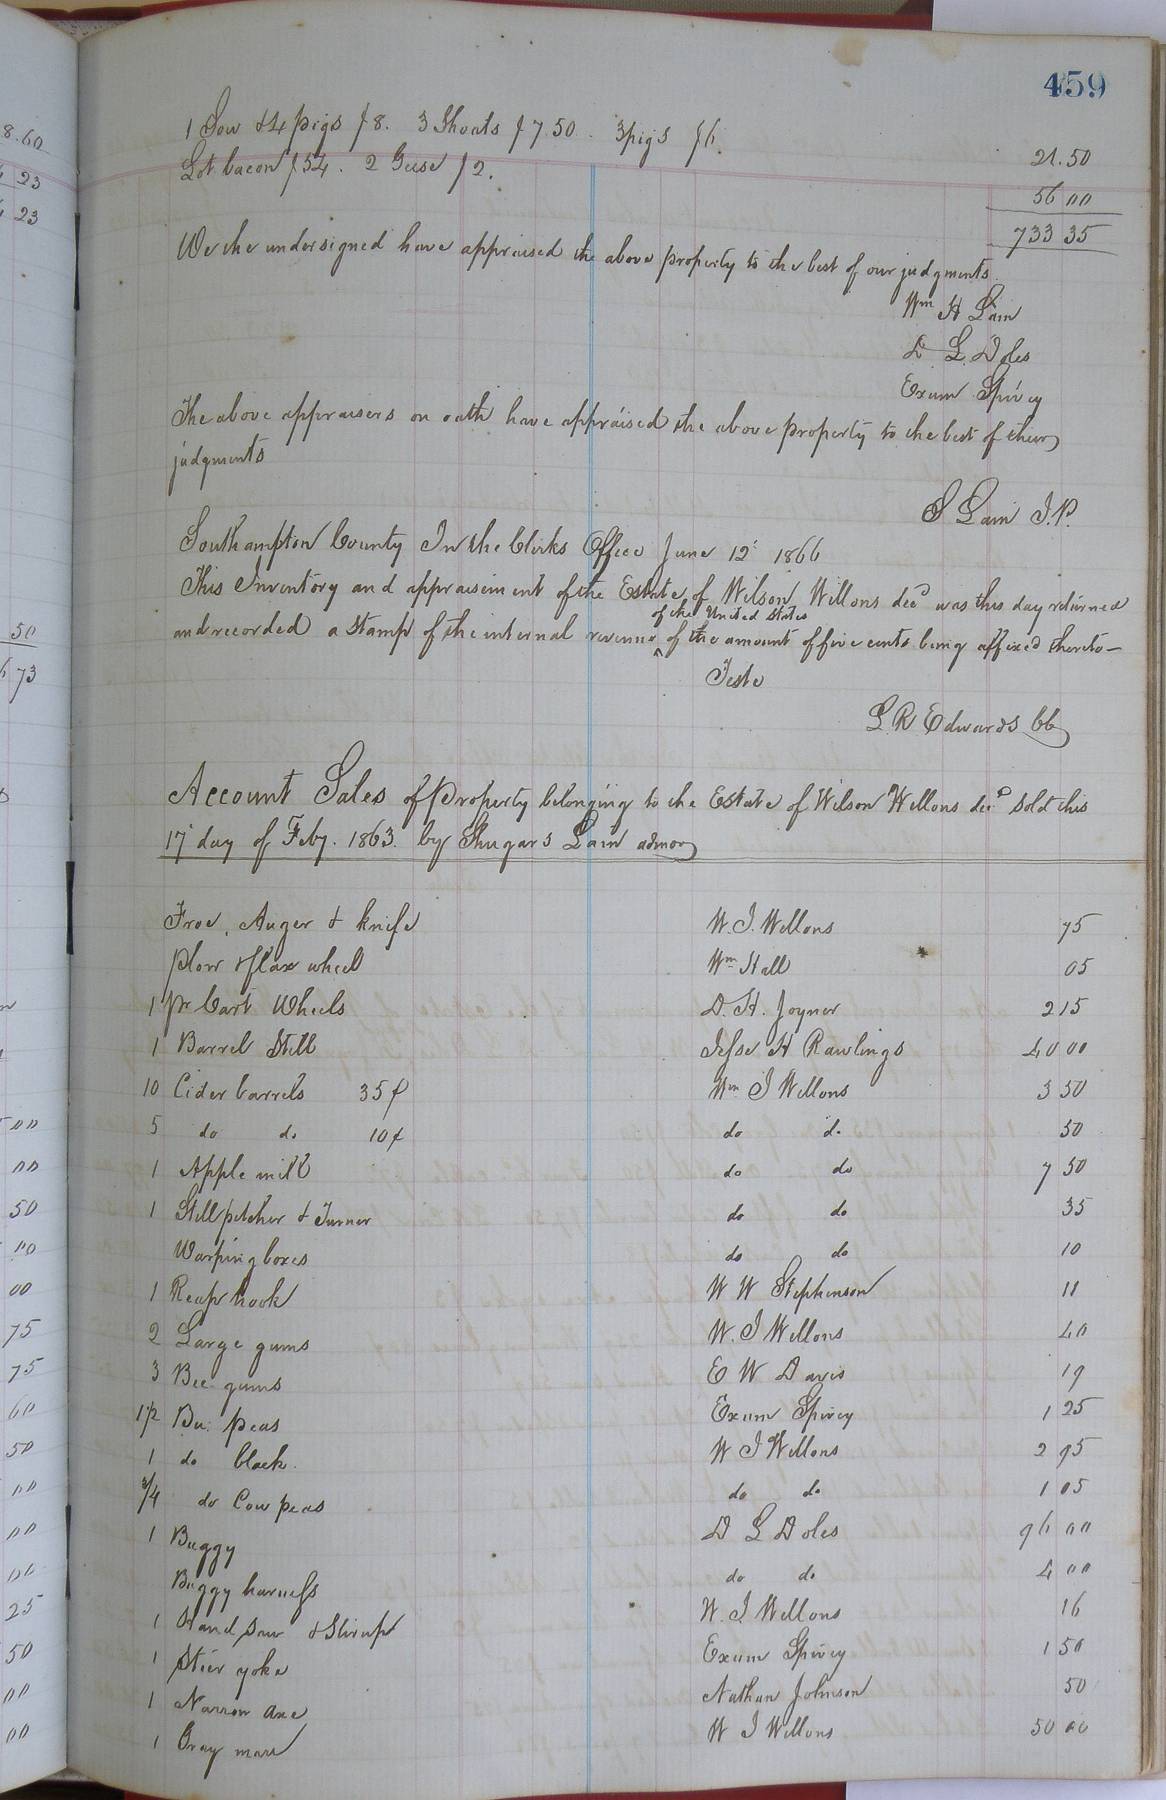 459
1 Sow & 4 pigs $8. 3 Shoats $7.50. 3 pigs $6. 21.50
Lot bacon $54. 2 Geese $2. 56 00
733 35
We the undersigned have appraised the above property to the best of our judgments.
Wm H Lain
D L Doles
Exum Spivey
The above appraisers on oath have appraised the above property to the best of their
judgments
S Lain J.P.
Southampton County In the Clerks Office June 12' 1866
This Inventory and appraisement of the Estate of Wilson Willons decd was this day returned
of the United States
and recorded a stamp of the internal revenue ^ of the amount of five cents being affixed thereto—
Teste
L R Edwards CC
Account Sales of Property belonging to the Estate of Wilson Willons decd sold this
17' day of Feby. 1863. by Shugars Lain admor
Froe, Auger & knife W. J. Willons 75
Plow & flax wheel Wm Hall 05
1 pr Cart Wheels D. H. Joyner 2 15
1 Barrel Still Jesse H Rawlings 40 00
10 Cider barrels 35¢ Wm J Willons 3 50
5 do do 10¢ do do 50
1 Apple mill do do 7 50
1 Still pitcher & Turner do do 35
Warping boxes do do 10
1 Reap hook W W Stephenson 11
2 Large gums W. J Willons 40
3 Bee gums E W Davis 19
1 1/2 Bu. peas Exum Spivey 1 25
1 do black. W J Willons 2 95
3/4 do Cow peas do do 1 05
1 Buggy D L Doles 96 00
Buggy harness do do 4 00
1 Hand saw & Stirup W. J Willons 16
1 Steer yoke Exum Spivey 1 50
1 Narrow axe Nathan Johnson 50
1 Gray mare W J Willons 50 00